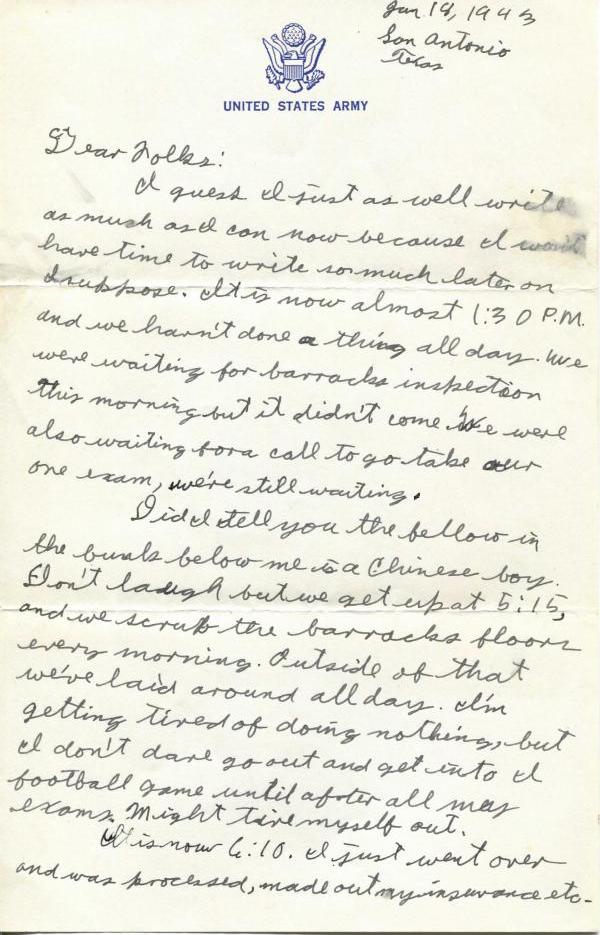 Jan 18, 1943
San Antonio
Texas
UNITED STATES ARMY
Dear Folks:
I guess I just as well write
as much as I can now because I won't
have time to write so much later on
I suppose. It is now almost 1:30 P.M.
and we harn't done a thing all day. We
were waiting for barracks inspection
this morning but it didn't come. We were
also waiting for a call to go take our
one exam, we're still waiting.
Did I tell you the fellow in
the bunk below me is a Chinese boy.
Don't laugh but we get up at 5:15,
and we scrub the barracks floors
every morning. Outside of that
we've laid around all day. I'm
getting tired of doing nothing, but
I don't dare go out and get into a
football game until after all my
exams. Might tire myself out.
It is now 6:10. I just went over
and was processed, made out my insurance etc-